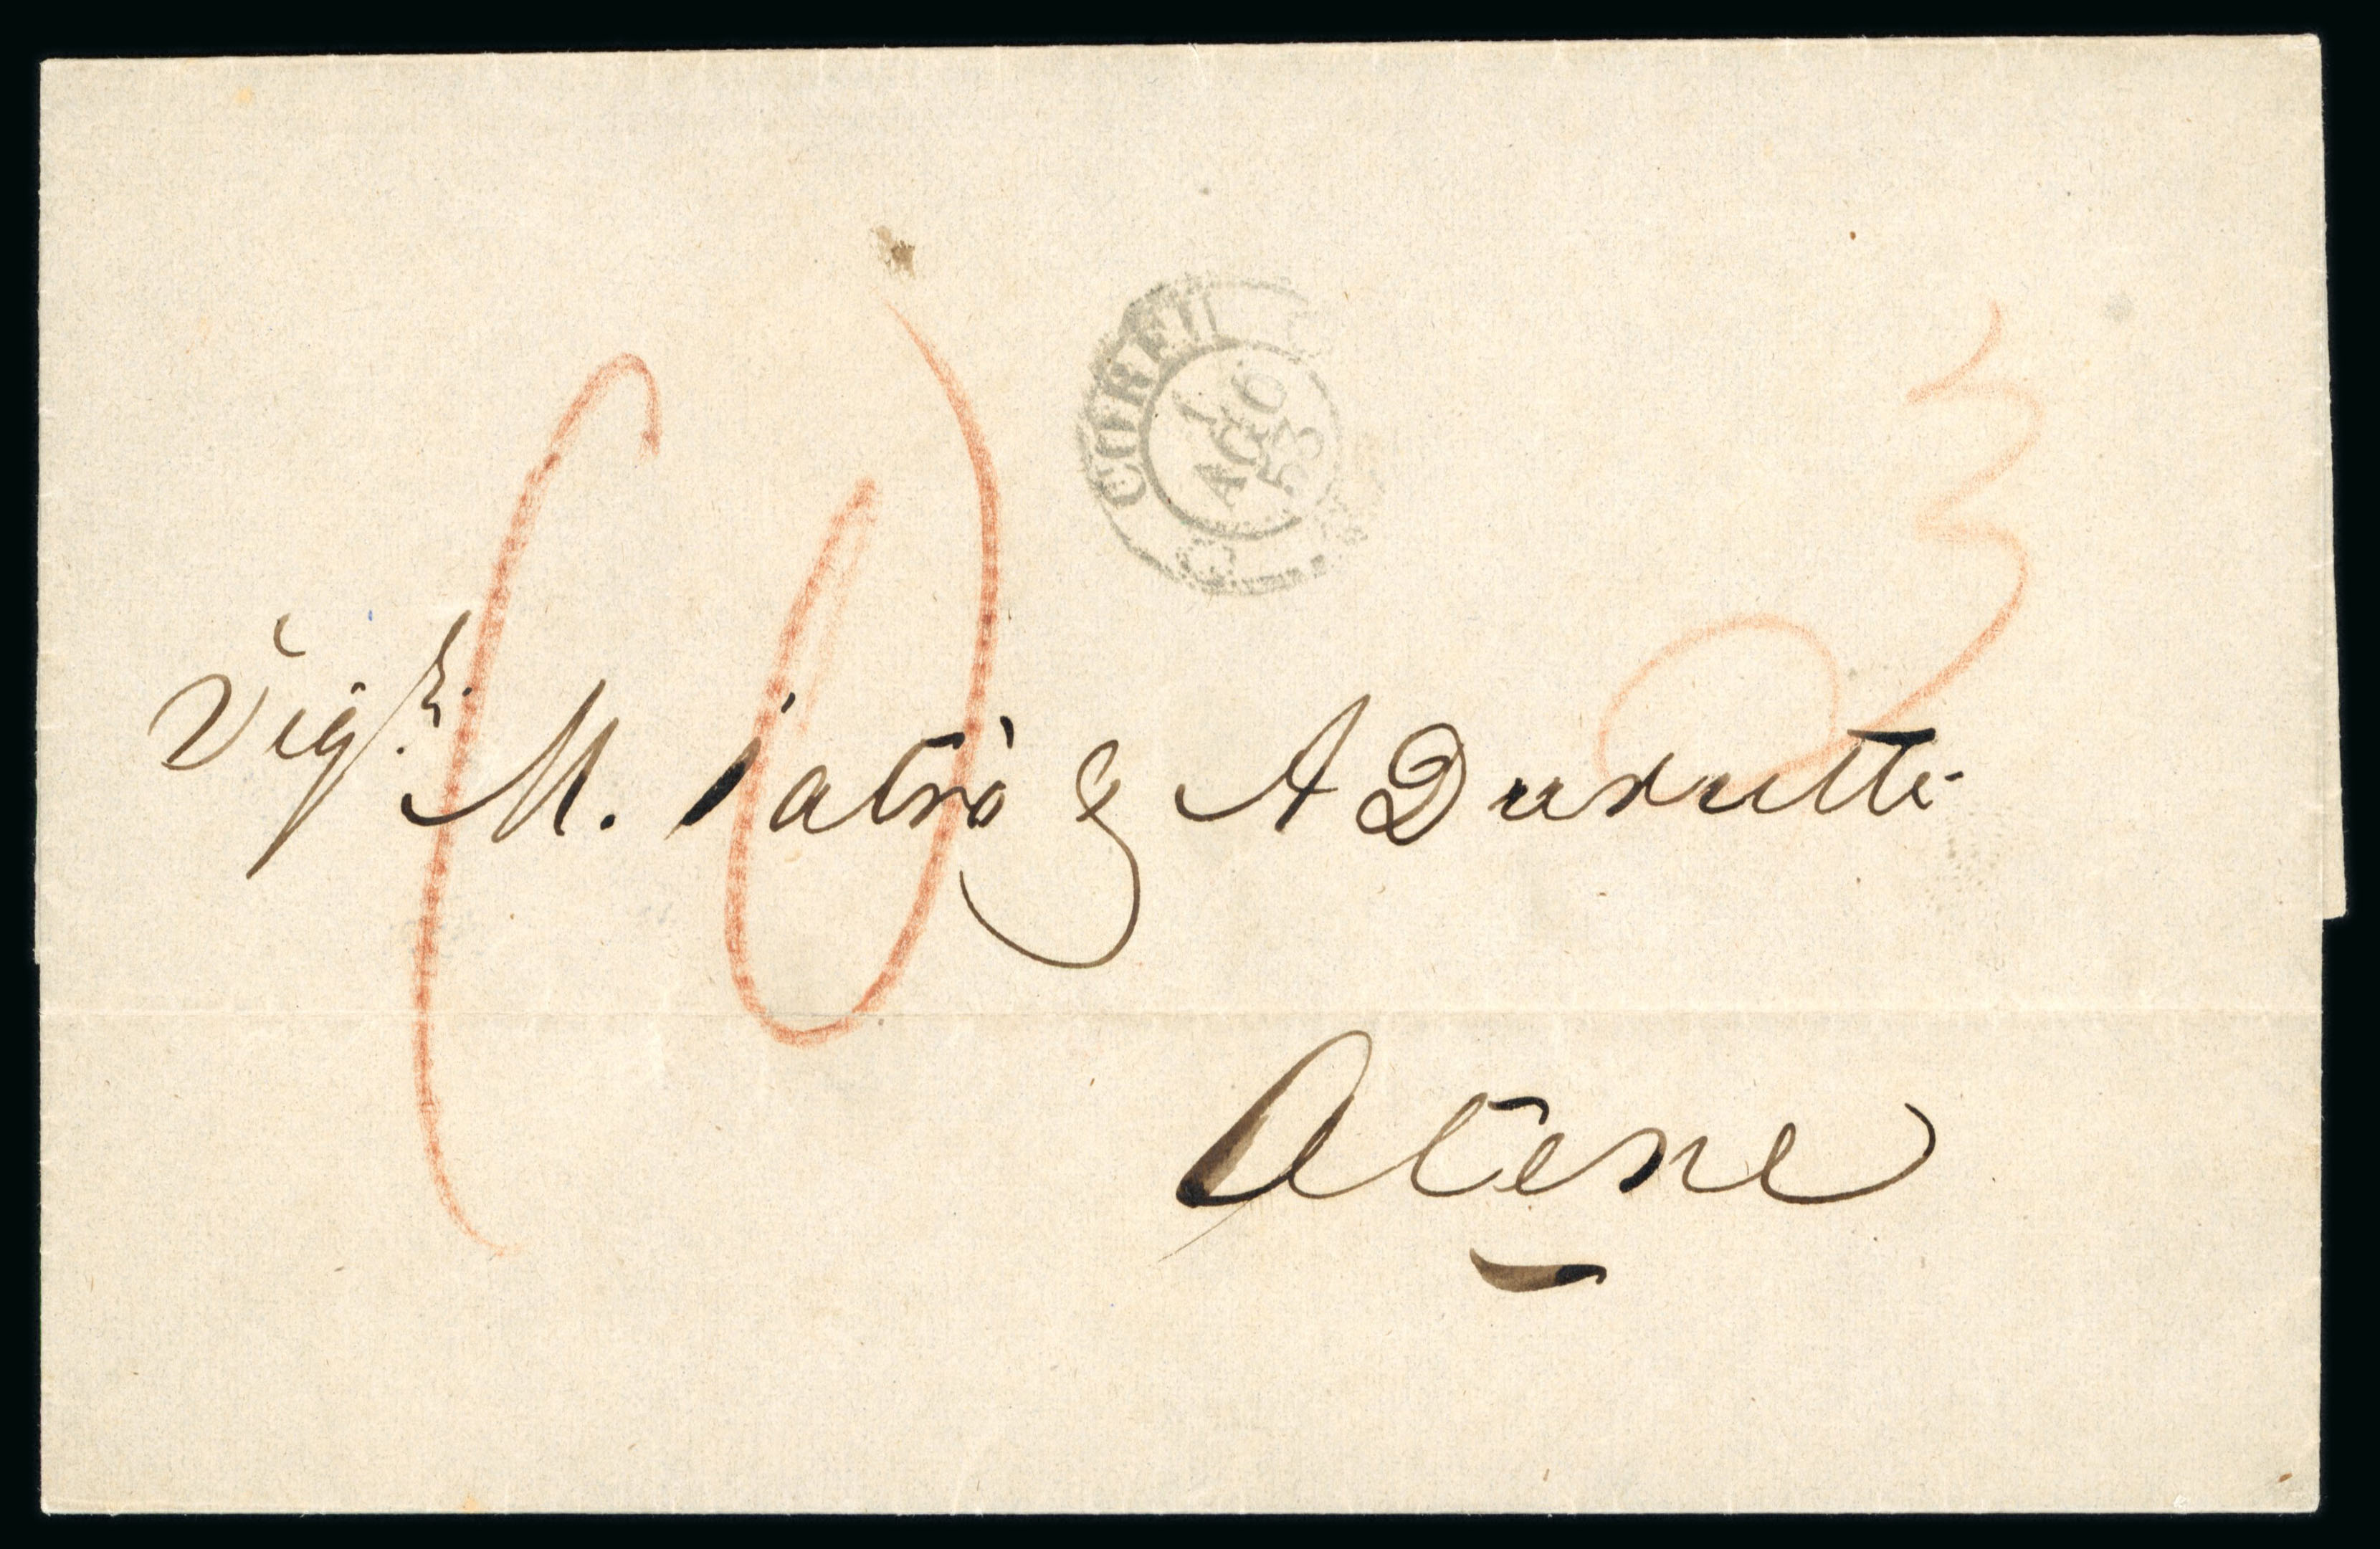 CORFU
1
AGO
53
Sigri
M. Iatrò & A Durutti
Atene